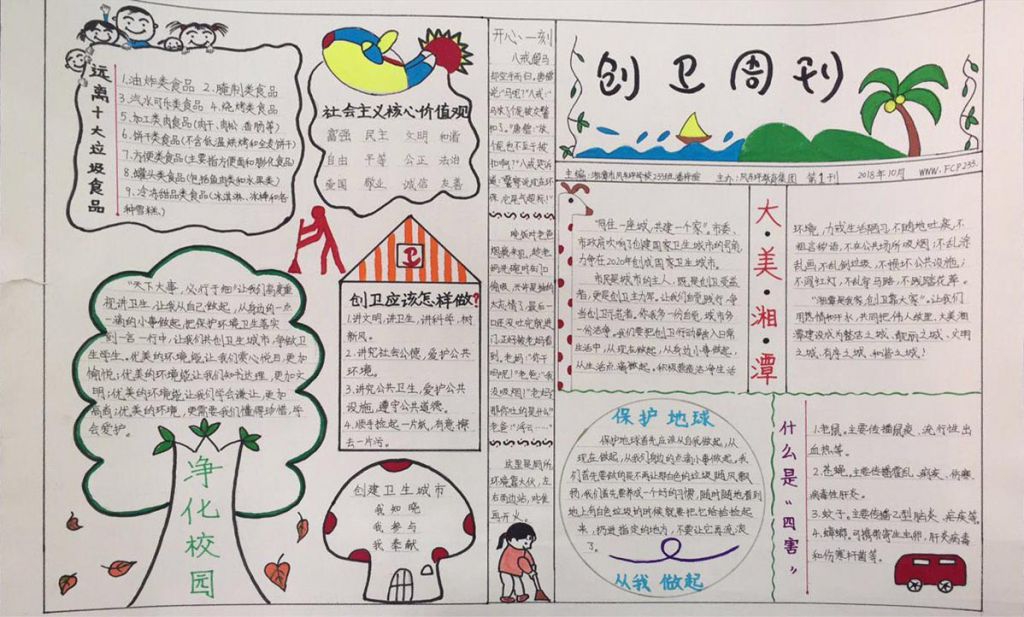 创卫周刊
主办:风车坪教育集团 第1刊 2018年10月 WWW.FCP233.
远离十大垃圾食品
1.油炸类食品 2.腌制类食品
3.汽水可乐类食品 4.烧烤类食品
5.加工类肉食品(肉干、肉松、香肠等)
6.饼干类食品(不含低温烘烤和全麦饼干)
7.方便类食品(主要指方便面和膨化食品)
8.罐头类食品(包括鱼肉类和水果类)
9.冷冻甜品类食品(冰淇淋、冰棒和各
种雪糕)
社会主义核心价值观
富强 民主 文明 和谐
自由 平等 公正 法治
爱国 敬业 诚信 友善
卫
创卫应该怎样做?
1.讲文明,讲卫生,讲科学,树
新风。
2.讲究社会公德,爱护公共
环境。
3.讲究公共卫生,爱护公共
设施,遵守公共道德。
4.顺手捡起一片纸,有意擦
去一片污。
“天下大事,必行于细”让我们高度重
视讲卫生,让我从自己做起,从身边的一点
一滴的小事做起,把保护环境卫生落实
到一言一行中,让我们共创卫生城市,争做卫
生学生。优美的环境能让我们赏心悦目,更加
愉悦;优美的环境能让我们知书达理,更加文
明;优美的环境能让我们学会谦让,更加
高尚;优美的环境,更需要我们懂得珍惜,学
会爱护。
净化校园
创建卫生城市
我知晓
我参与
我奉献
开心一刻
八戒遛马
却空手而归,唐僧
晚饭时老爸
我吸烟!”老妈:“
那你吐的是什么”
老爸:“浮云……”
这里是厕所,
环境靠大伙,左
右两边站,对准
再开火。
大·美·湘·潭
“同住一座城,共建一个家”。市委、
市政府吹响了创建国家卫生城市的号角,
力争在2020年创成国家卫生城市。
市民是城市的主人,既是创卫受益
者,更是创卫主力军。让我们自觉践行,争
生活中,从现在做起,从身边小事做起,
从生活点滴做起。积极营造洁净生活
环境,力戒生活陋习,不随地吐痰,不
粗言秽语,不在公共场所吸烟;不乱涂
乱画,不乱倒垃圾,不损坏公共设施;
不闯红灯,不乱穿马路,不践踏花草。
“湘潭是我家,创卫靠大家”。让我们
用热情和汗水,共同把伟人故里,大美湘
潭建设成为整洁之城、靓丽之城、文明
之城、有序之城、和谐之城!
保护地球
保护地球首先应该从自我做起,从
现在做起,从我们身边的点滴小事做起。我
们首先要做的是不再让那白色的垃圾随风飘
扬,我们首先要养成一个好的习惯,随时随地看到
地上有白色垃圾的时候就要把它给捡捡起
来,扔进指定的地方,不要让它再流浪
了。
从我做起
什么是“四害”
1.老鼠。主要传播鼠疫、流行性出
血热等。
2.苍蝇。主要传播霍乱、痢疾、伤寒、
病毒性肝炎。
3.蚊子。主要传播乙型脑炎、疟疾等。
4.蟑螂。可携带寄生虫卵,肝炎病毒
和伤寒杆菌等。